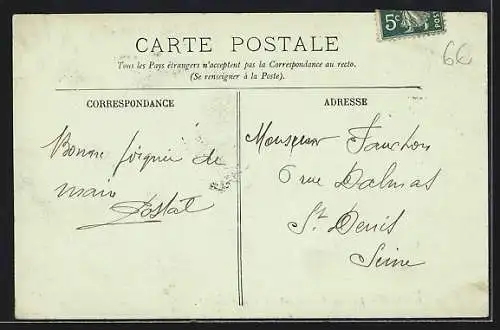 5c
POSTES
6€
CARTE POSTALE
Tous les Pays étrangers n'acceptent pas la Correspondance au recto.
(Se renseigner à la Poste).
CORRESPONDANCE
Bonne poignée de
main
Postat
ADRESSE
Monsieur Fauchon
6 rue Dalmas
St Denis
Seine